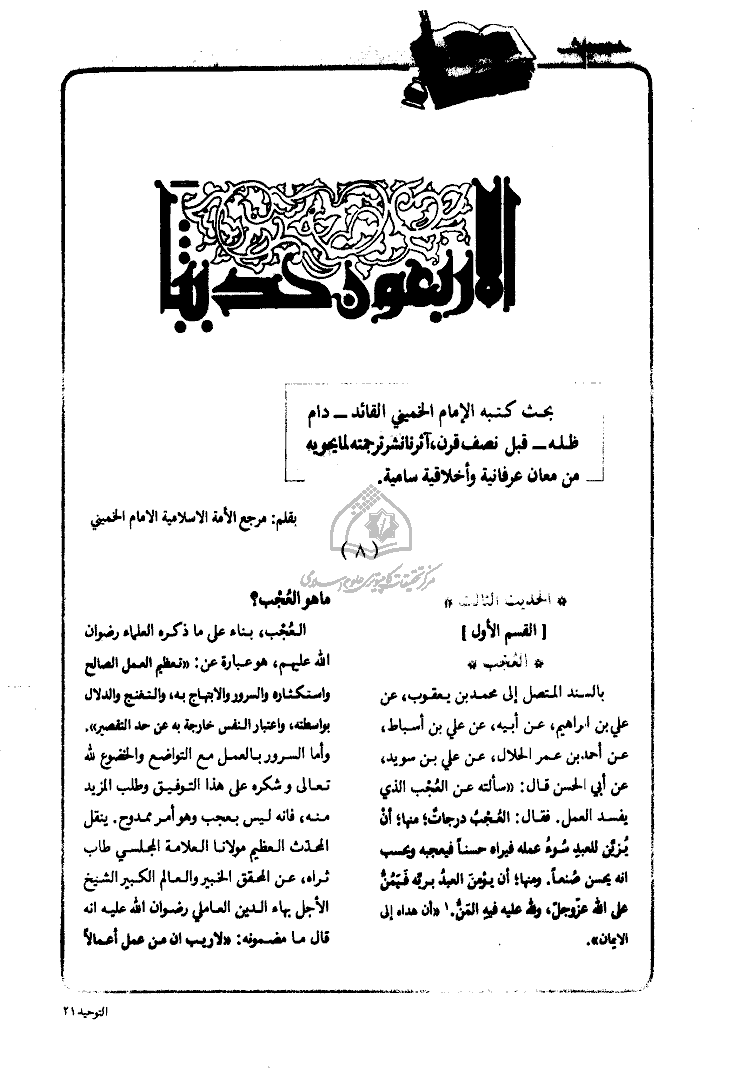 الاربعون حديثا
بحث كتبه الإمام الخميني القائد ــ دام
ظله ــ قبل نصف قرن، آثرنا نشر ترجمته لما يحويه
من معان عرفانية وأخلاقية سامية.
بقلم: مرجع الأمة الاسلامية الامام الخميني
(٨)
مركز تحقيقات كامپيوتری علوم اسلامی
* الحديث الثالث *
[ القسم الأول ]
* العُجب *
بالسند المتصل إلى محمد بن يعقوب، عن
علي بن ابراهيم، عن أبيه، عن علي بن أسباط،
عن أحمد بن عمر الحلال، عن علي بن سويد،
عن أبي الحسن قال: «سألته عن العُجب الذي
يفسد العمل. فقال: العُجبُ درجاتٌ؛ منها؛ أنْ
يُزيَّن للعبدِ سُوءُ عمله فيراه حسناً فيعجبه ويحسب
انه يحسن صُنعاً. ومنها؛ أن يؤمنَ العبدُ بربّه فَيَمُنُّ
على الله عزّوجلّ، ولله عليه فيهِ المَنُّ.¹ «أن هداه إلى
الايمان».
ماهو العُجْب؟
العُجْب، بناء على ما ذكره العلماء رضوان
الله عليهم، هو عبارة عن: «تعظيم العمل الصالح
واستكثاره والسرور والابتهاج به، والتغنج والدلال
بواسطته، واعتبار النفس خارجة به عن حد التقصير».
وأما السرور بالعمل مع التواضع والخضوع لله
تعالى و شكره على هذا التوفيق وطلب المزيد
منه، فانه ليس بعجب وهو أمر ممدوح. ينقل
المحدّث العظيم مولانا العلامة المجلسي طاب
ثراه، عن المحقق الخبير والعالم الكبير الشيخ
الأجل بهاء الدين العاملي رضوان الله عليه انه
قال ما مضمونه: «لاريب ان من عمل أعمالاً
التوحيد ٢١